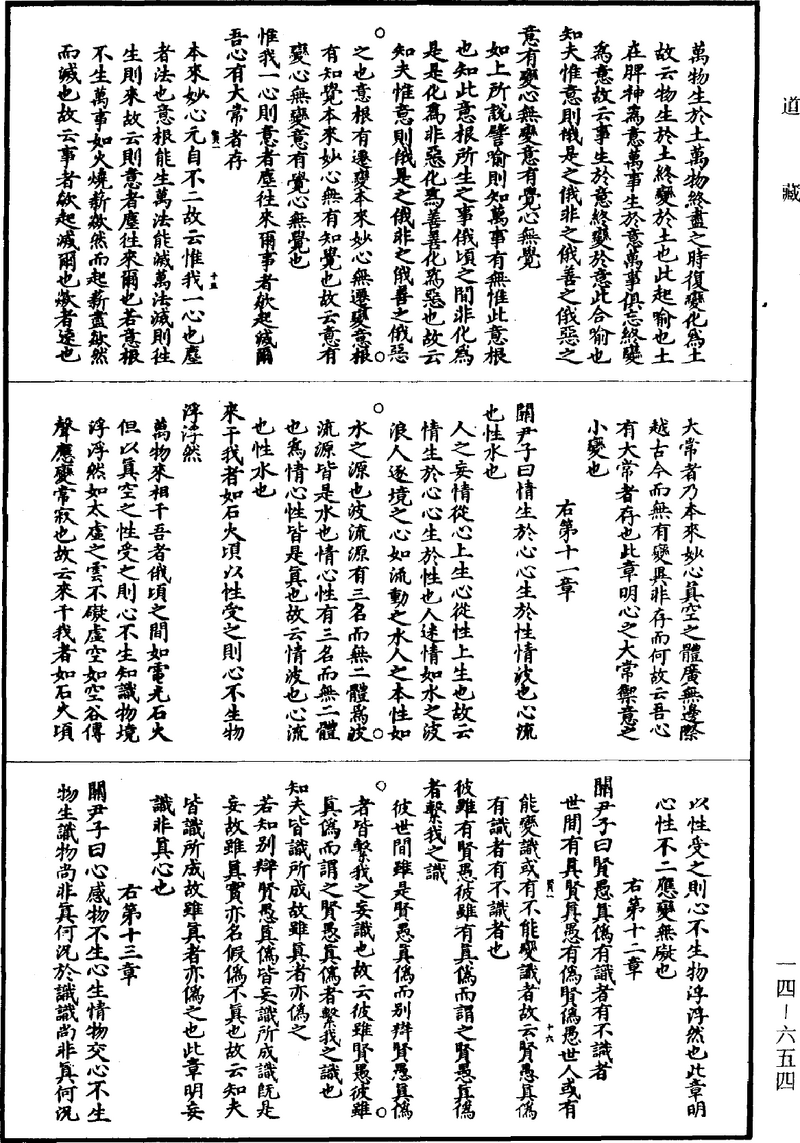 道藏
萬物生於土萬物終盡之時復變化為土
故云物生於土終變於土也此起喻也土
在脾神為意萬事生於意萬事俱忘終變
為意故云事生於意終變於意此合喻也
知夫惟意則俄是之俄非之俄善之俄惡之
意有變心無變意有覺心無覺
如上所說譬喻則知萬事有無惟此意根
也知此意根所生之事俄頃之間非化為
是是化為非惡化為善善化為惡也故云
知夫惟意則俄是之俄非之俄善之俄惡
之也意根有遷變本來妙心無遷變意根
有知覺本來妙心無有知覺也故云意有
變心無變意有覺心無覺也
惟我一心則意者塵往來爾事者欻起滅爾
吾心有大常者存
本來妙心元自不二故云惟我一心也塵
者法也意根能生萬法能滅萬法滅則往
生則來故云則意者塵往來爾也若意根
不生萬事如火燒薪欻然而起薪盡欻然
而滅也故云事者欻起滅爾也欻者速也
大常者乃本來妙心真空之體廣無邊際
越古今而無有變異非存而何故云吾心
有大常者存也此章明心之大常禦意之
小變也
右第十一章
關尹子曰情生於心心生於性情波也心流
也性水也
人之妄情從心上生心從性上生也故云
情生於心心生於性也人迷情如水之波
浪人逐境之心如流動之水人之本性如
水之源也波流源有三名而無二體為波
流源皆是水也情心性有三名而無二體
也為情心性皆是真也故云情波也心流
也性水也
來干我者如石火頃以性受之則心不生物
浮浮然
萬物來相干吾者俄頃之間如電光石火
但以真空之性受之則心不生知識物境
浮浮然如太虛之雲不礙虛空如空谷傳
聲應變常寂也故云來干我者如石火頃
以性受之則心不生物浮浮然也此章明
心性不二應變無礙也
右第十二章
關尹子曰賢愚真偽有識者有不識者
世間有真賢真愚有偽賢偽愚世人或有
能變識或有不能變識者故云賢愚真偽
有識者有不識者也
彼雖有賢愚彼雖有真偽而謂之賢愚真偽
者繫我之識
彼世間雖是賢愚真偽而別辯賢愚真偽
者皆繫我之妄識也故云彼雖賢愚彼雖
真偽而謂之賢愚真偽者繫我之識也
知夫皆識所成故雖真者亦偽之
若知別辯賢愚真偽皆妄識所成識既是
妄故雖真實亦名假偽不真也故云知夫
皆識所成故雖真者亦偽之也此章明妄
識非真心也
右第十三章
關尹子曰心感物不生心生情物交心不生
物生識物尚非真何況於識識尚非真何況
一四—六五四